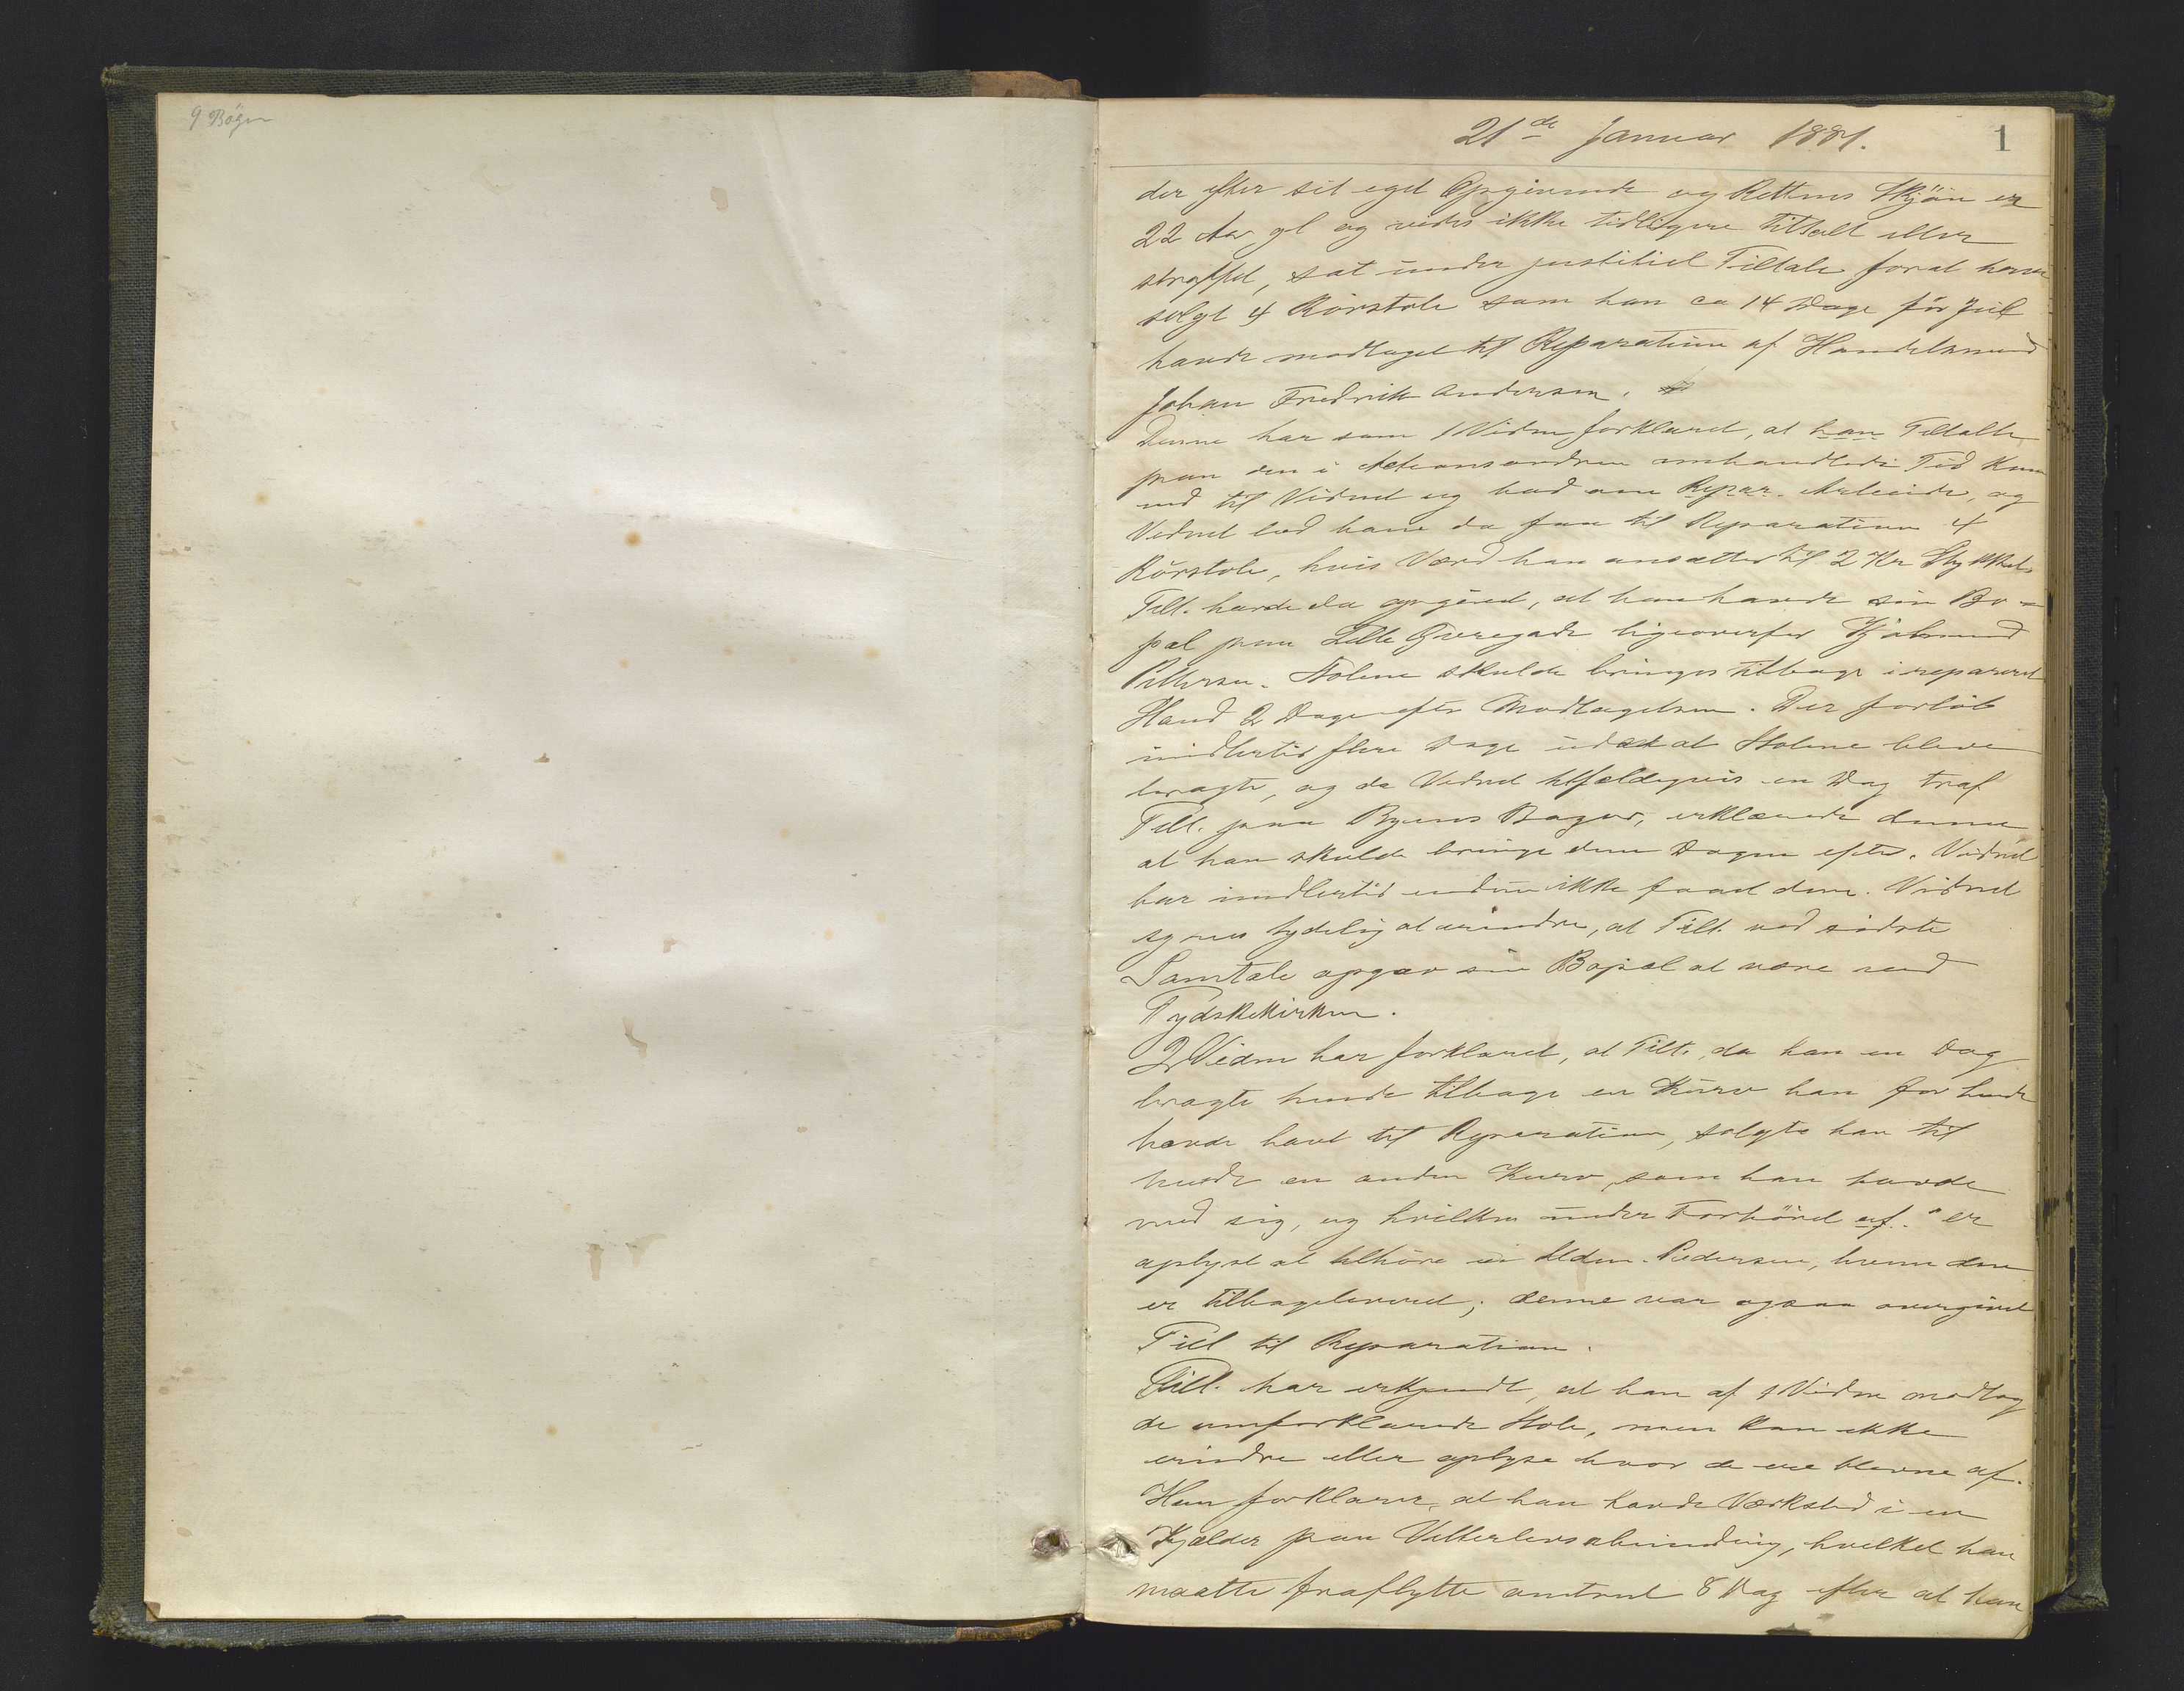 9 Bøger
21de Januar 1881.
1
der efter sit eget Opgivende og Rettens Skjøn er
22 Aar gl og vides ikke tidligere tiltalt eller
straffet, sat under justitiel Tiltale for at have
solgt 4 Rørstole som han ca 14 Dage før Jul
havde modtaget til Reparation af Handelsmand
Johan Fredrik Andersen.
Denne har som 1 Vidne forklaret, at han Tiltalte
paa den i Actionsordren omhandlede Tid kom
ind til Vidnet og bad om Repar. Arbeide, og
Vidnet lod ham da faa til Reparation 4
Rørstole, hvis Værd han ansætter til 2 Kr Stykket.
Tilt. havde da opgivet, at han havde sin Bo-
pæl paa Lille Øvregade ligeoverfor Kjøbmand
Pettersen. Stolene skulde bringes tilbage i repareret
Stand 2 Dage efter Modtagelsen. Der forløb
imidlertid flere Dage uden at Stolene bleve
bragte, og da Vidnet tilfældigvis en Dag traf
Tilt. paa Byens Bagør, erklærede denne
at han skulde bringe dem Dagen efter. Vidnet
har imidlertid endnu ikke faaet dem. Vidnet
synes tydelig at erindre, at Tilt. ved sidste
Samtale opgav sin Bopæl at være ved
Tydskekirken.
2 Vidne har forklaret, at Tilt., da han en Dag
bragte hende tilbage en Kurv han for hende
havde havt til Reparation, solgte han til
hende en anden Kurv, som han havde
med sig, og hvilken under Forhøret er
oplyst at tilhøre en Md. Pedersen, hvem den
er tilbageleveret; denne var ogsaa overgivet
Tilt til Reparation.
Tilt. har erkjendt, at han af 1 Vidne modtog
de omforklarede Stole, men kan ikke
erindre eller oplyse hvor de ere blevne af.
Han forklarer, at han havde Værksted i en
Kjælder paa Vetterlevsalmending, hvilket han
maatte fraflytte omtrent 8 Dag efter at han